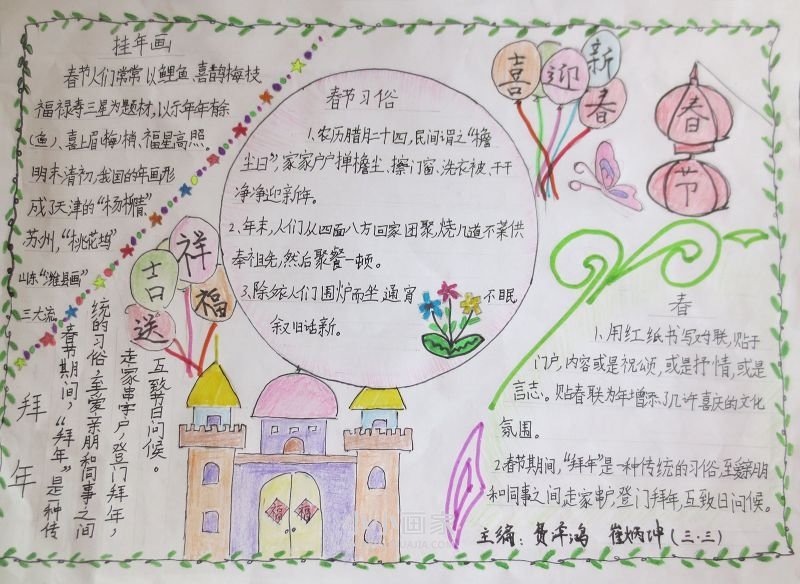 挂年画
春节人们常常以鲤鱼、喜鹊梅枝
福禄寿三星为题材,以示年年有余
(鱼)、喜上眉(梅)梢、福星高照。
明末清初,我国的年画形
成了天津的"杨柳青"
苏州,"桃花坞"
山东"潍县画"
三大流
春节习俗
1、农历腊月二十四,民间谓之"檐
尘日",家家户户掸檐尘、擦门窗、洗衣被、干干
净净迎新年。
2、年末,人们从四面八方回家团聚,烧几道不菜供
奉祖先,然后聚餐一顿。
3、除夜人们围炉而坐,通宵不眠
叙旧话新。
喜迎新春
春节
吉祥
送福
福福
拜年
春节期间,"拜年"是一种传
统的习俗,至爱亲朋和同事之间
走家串户,登门拜年,
互致节日问候。
春
1、用红纸书写对联,贴于
门户,内容或是祝颂,或是抒情,或是
言志。贴春联为年增添了几许喜庆的文化
氛围。
2、春节期间,"拜年"是一种传统的习俗,至爱亲朋
和同事之间走家串户,登门拜年,互致日问候。
主编:
(三·三)